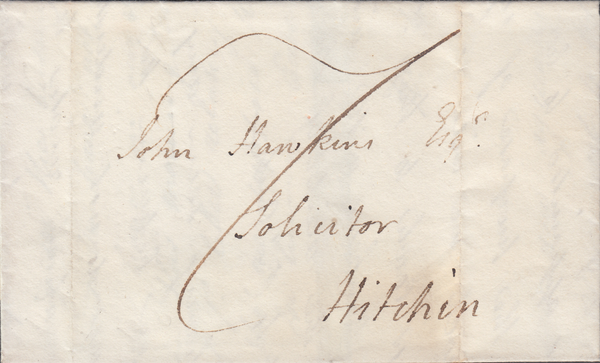 7
John Hawkins Esqr.
Solicitor
Hitchin